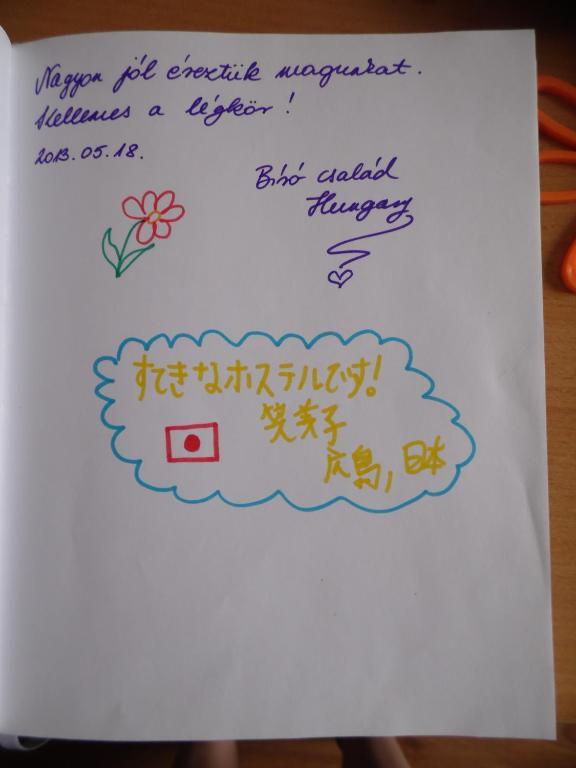 Nagyon jól éreztük magunkat.
Kellemes a légkör!
2013.05.18.
Bíró család
Hungary
すてきなホステルです!
笑美子
広島, 日本